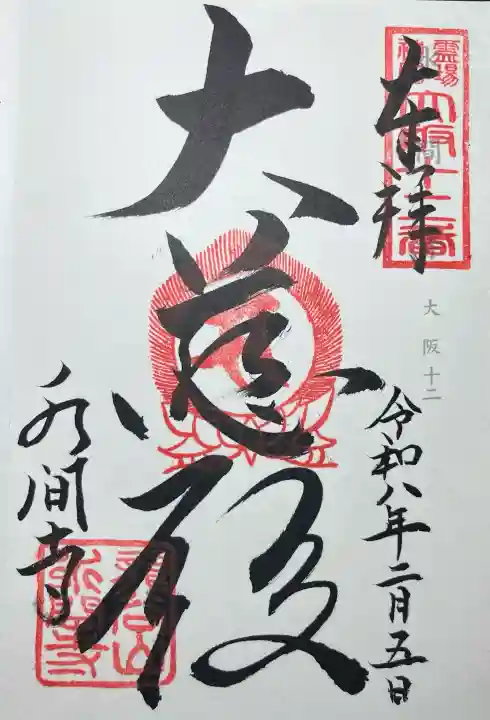 奉拝
大阪十二
令和八年二月五日
大慈殿
水間寺